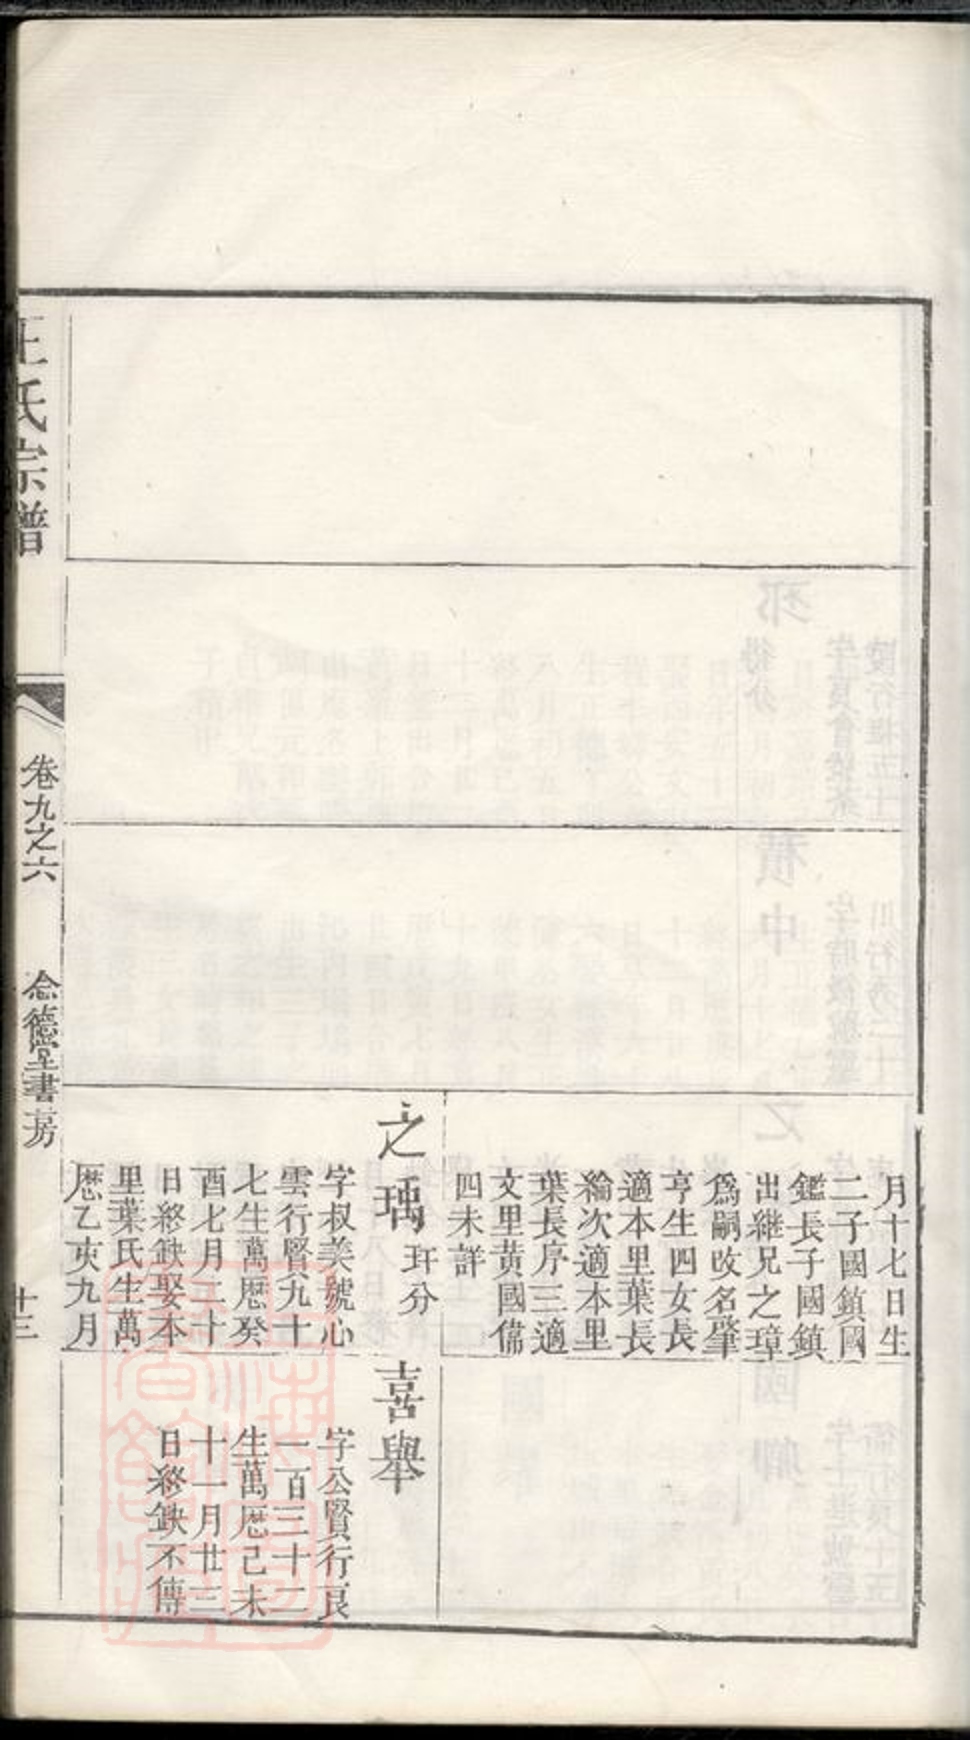 月十七日生
二子國鎮國
鑑長子國鎮
出継兄之璋
爲嗣攺名肇
亨生四女長
適本里葉長
綸次適本里
葉長序三適
文里黃國儒
四未詳
之瑀玨分
字叔美號心
雲行賢六九十
七生萬厯癸
酉七月二十
日終缺娶本
里葉氏生萬
厯乙亥九月
喜舉
字公賢行良
一百三十二
生萬厯己未
十一月廿三
日終缺不傳
王氏宗譜
卷九之六
念德堂書房
十三